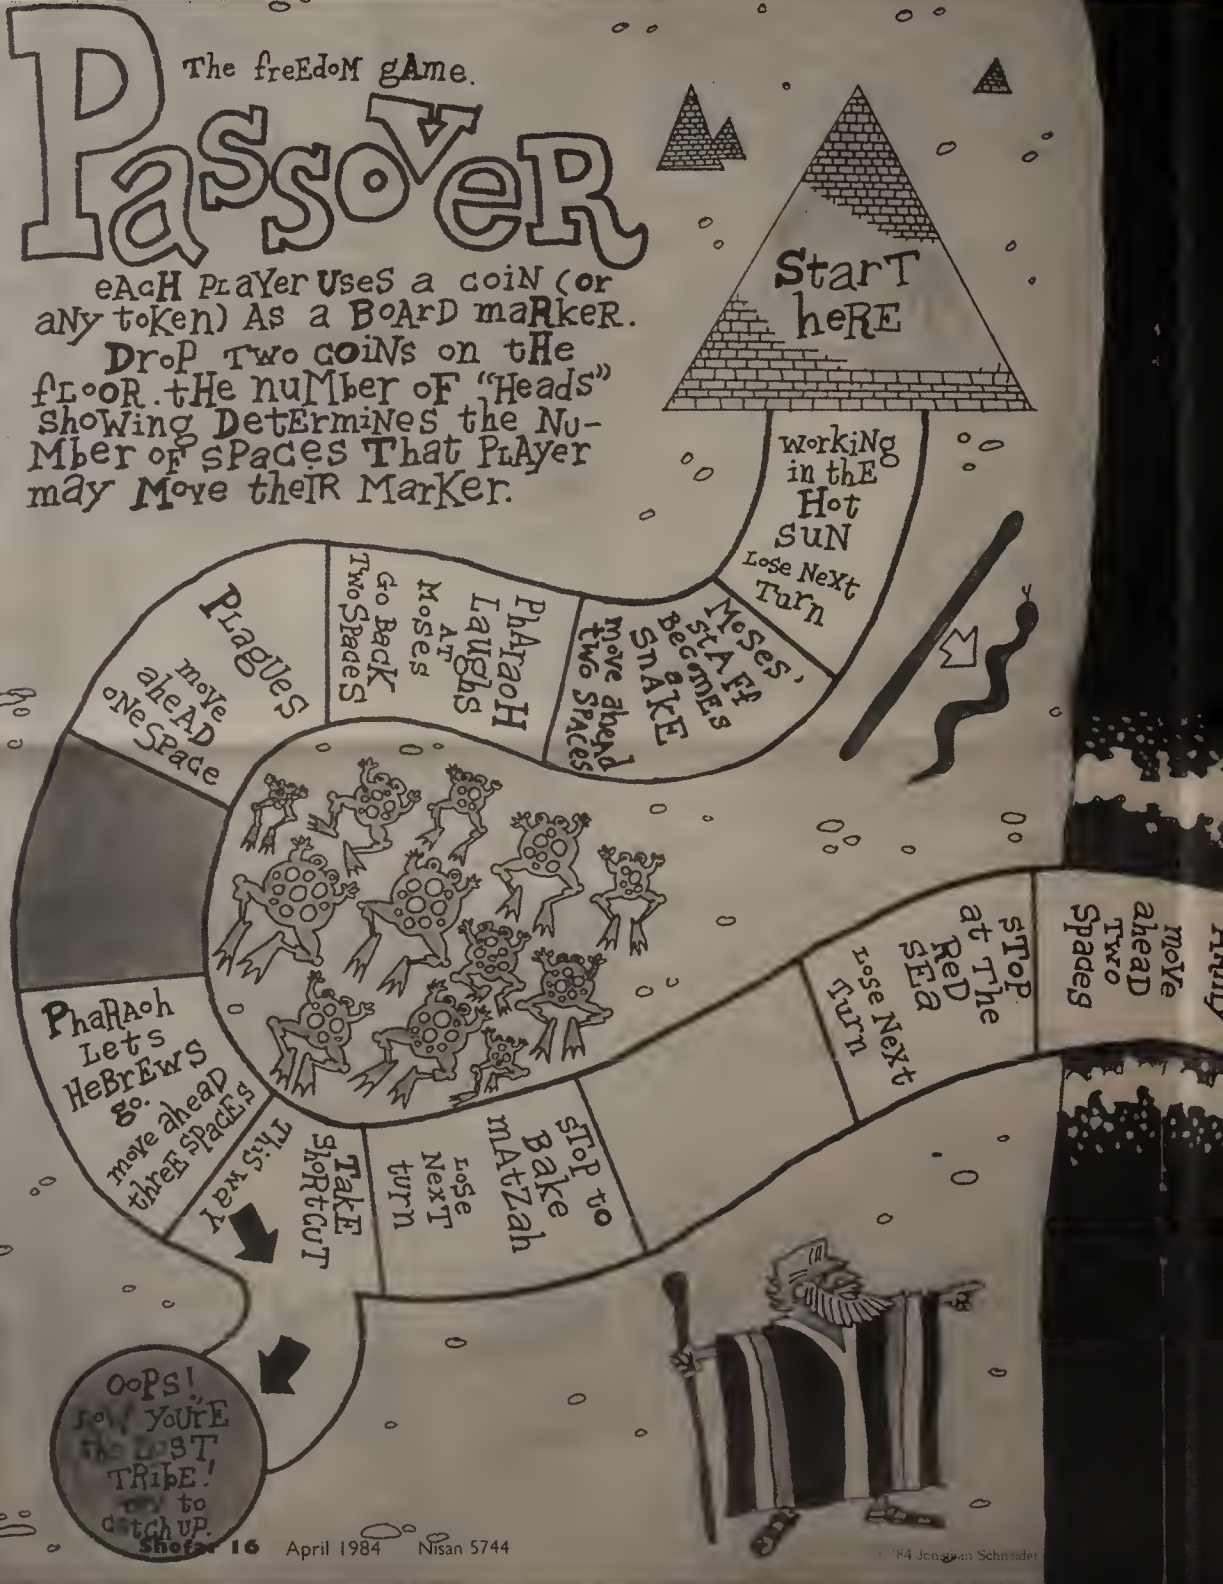 The freEdoM gAme.
PassoveR
eAcH PLaYer Uses a coiN (or
aNy toKen) As a BoArD maRkeR.
DroP Two coiNs on tHe
fLoOR. tHe nuMber oF "Heads"
shoWing DetErmiNes the Nu-
Mber oF sPaces That PLAyer
may Move theiR MarKer.
StarT
heRE
workiNg
in thE
Hot
suN
Lose NeXt
Turn
Moses'
stAFf
BecomEs
a
SnAkE
move ahead
two SPAces
PhAraoH
Laughs
AT
MoSes
Go Back
Two SPaceS
PLagUes
move
aheAD
oNe SPace
PhaRAoh
Lets
HeBrEwS
go.
move aheaD
threE SPacEs
This way
TakE
ShoRtCuT
sToP to
Bake
mAtZah
LoSe
NexT
turn
sToP
at The
ReD
SEa
Lose NeXt
Turn
moVe
aheaD
Two
Spaces
OoPS!
YoUrE
TRibE!
to
catch UP.
Shofar 16 April 1984 Nisan 5744
'84 Jonathan Schneider